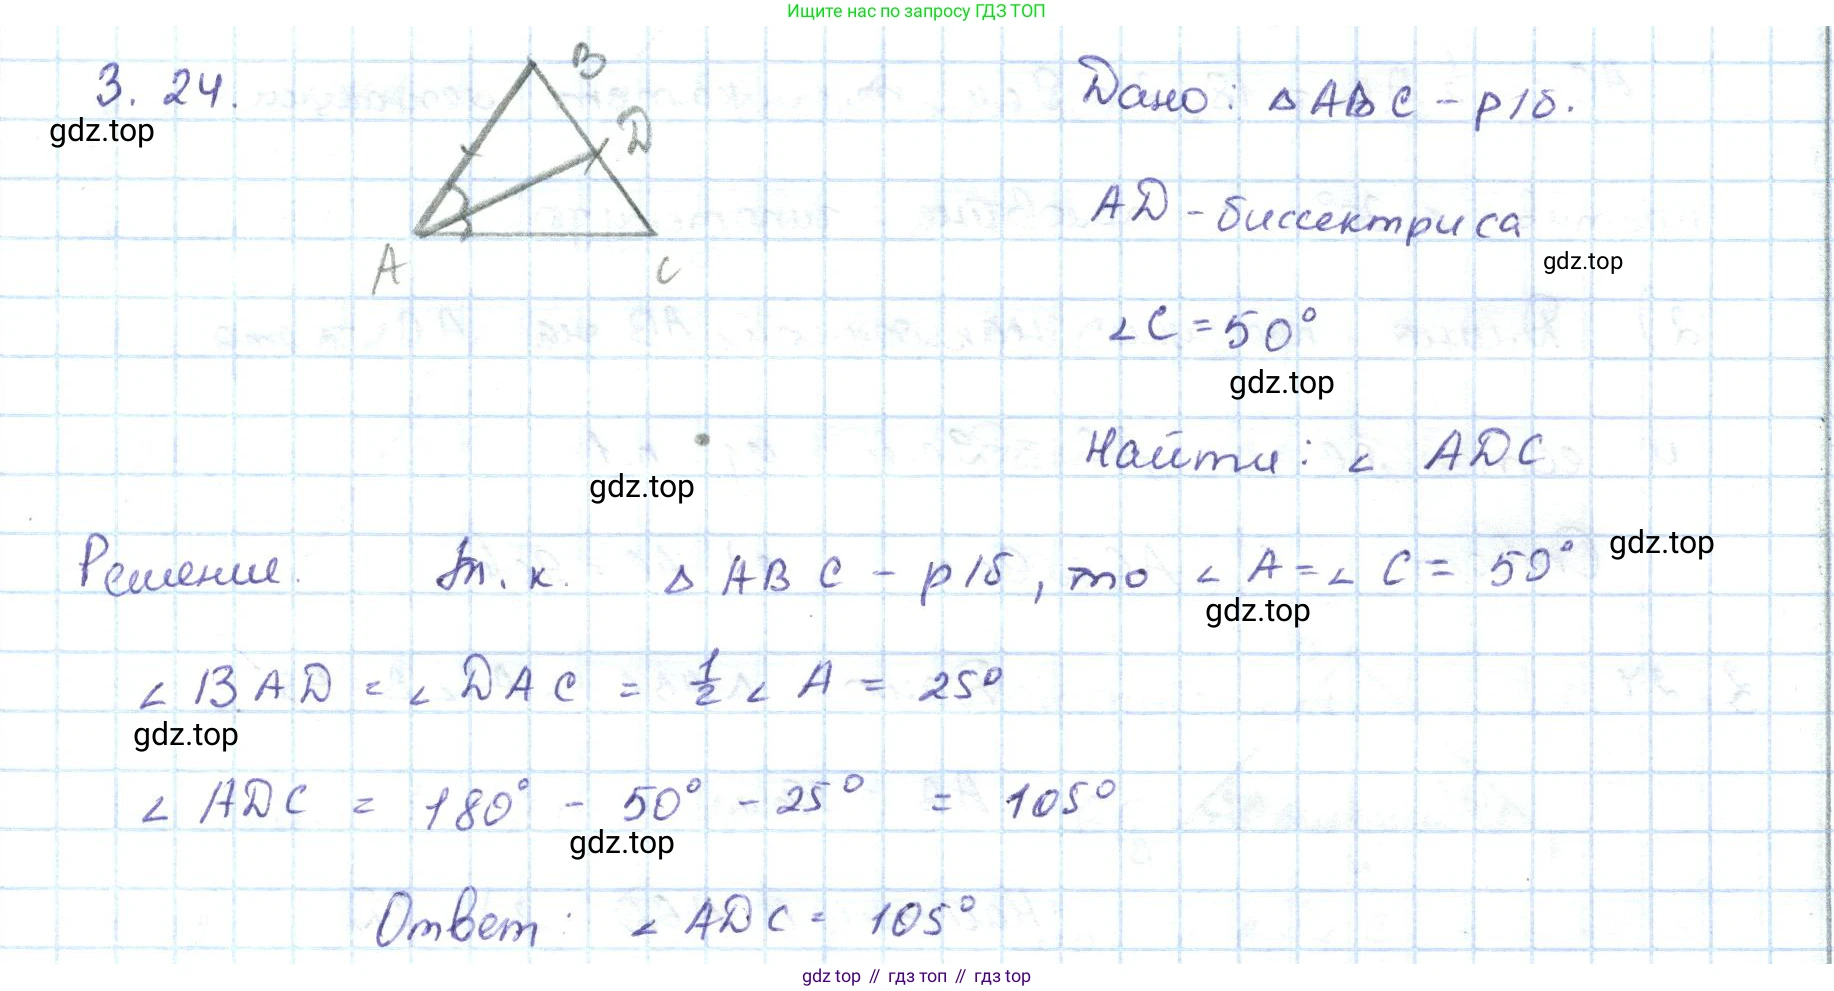 Ищите нас по запросу ГДЗ ТОП
3. 24.
gdz.top
B
D
A
C
Дано: △ ABC - р/б.
AD - биссектриса
gdz.top
∠C = 50°
gdz.top
Найти: ∠ ADC
gdz.top
Решение. Т.к. △ ABC - р/б, то ∠ A = ∠ C = 50°
gdz.top
gdz.top
∠ BAD = ∠ DAC = 1/2 ∠ A = 25°
gdz.top
∠ ADC = 180° - 50° - 25° = 105°
gdz.top
Ответ: ∠ ADC = 105°
gdz top // гдз топ // gdz top